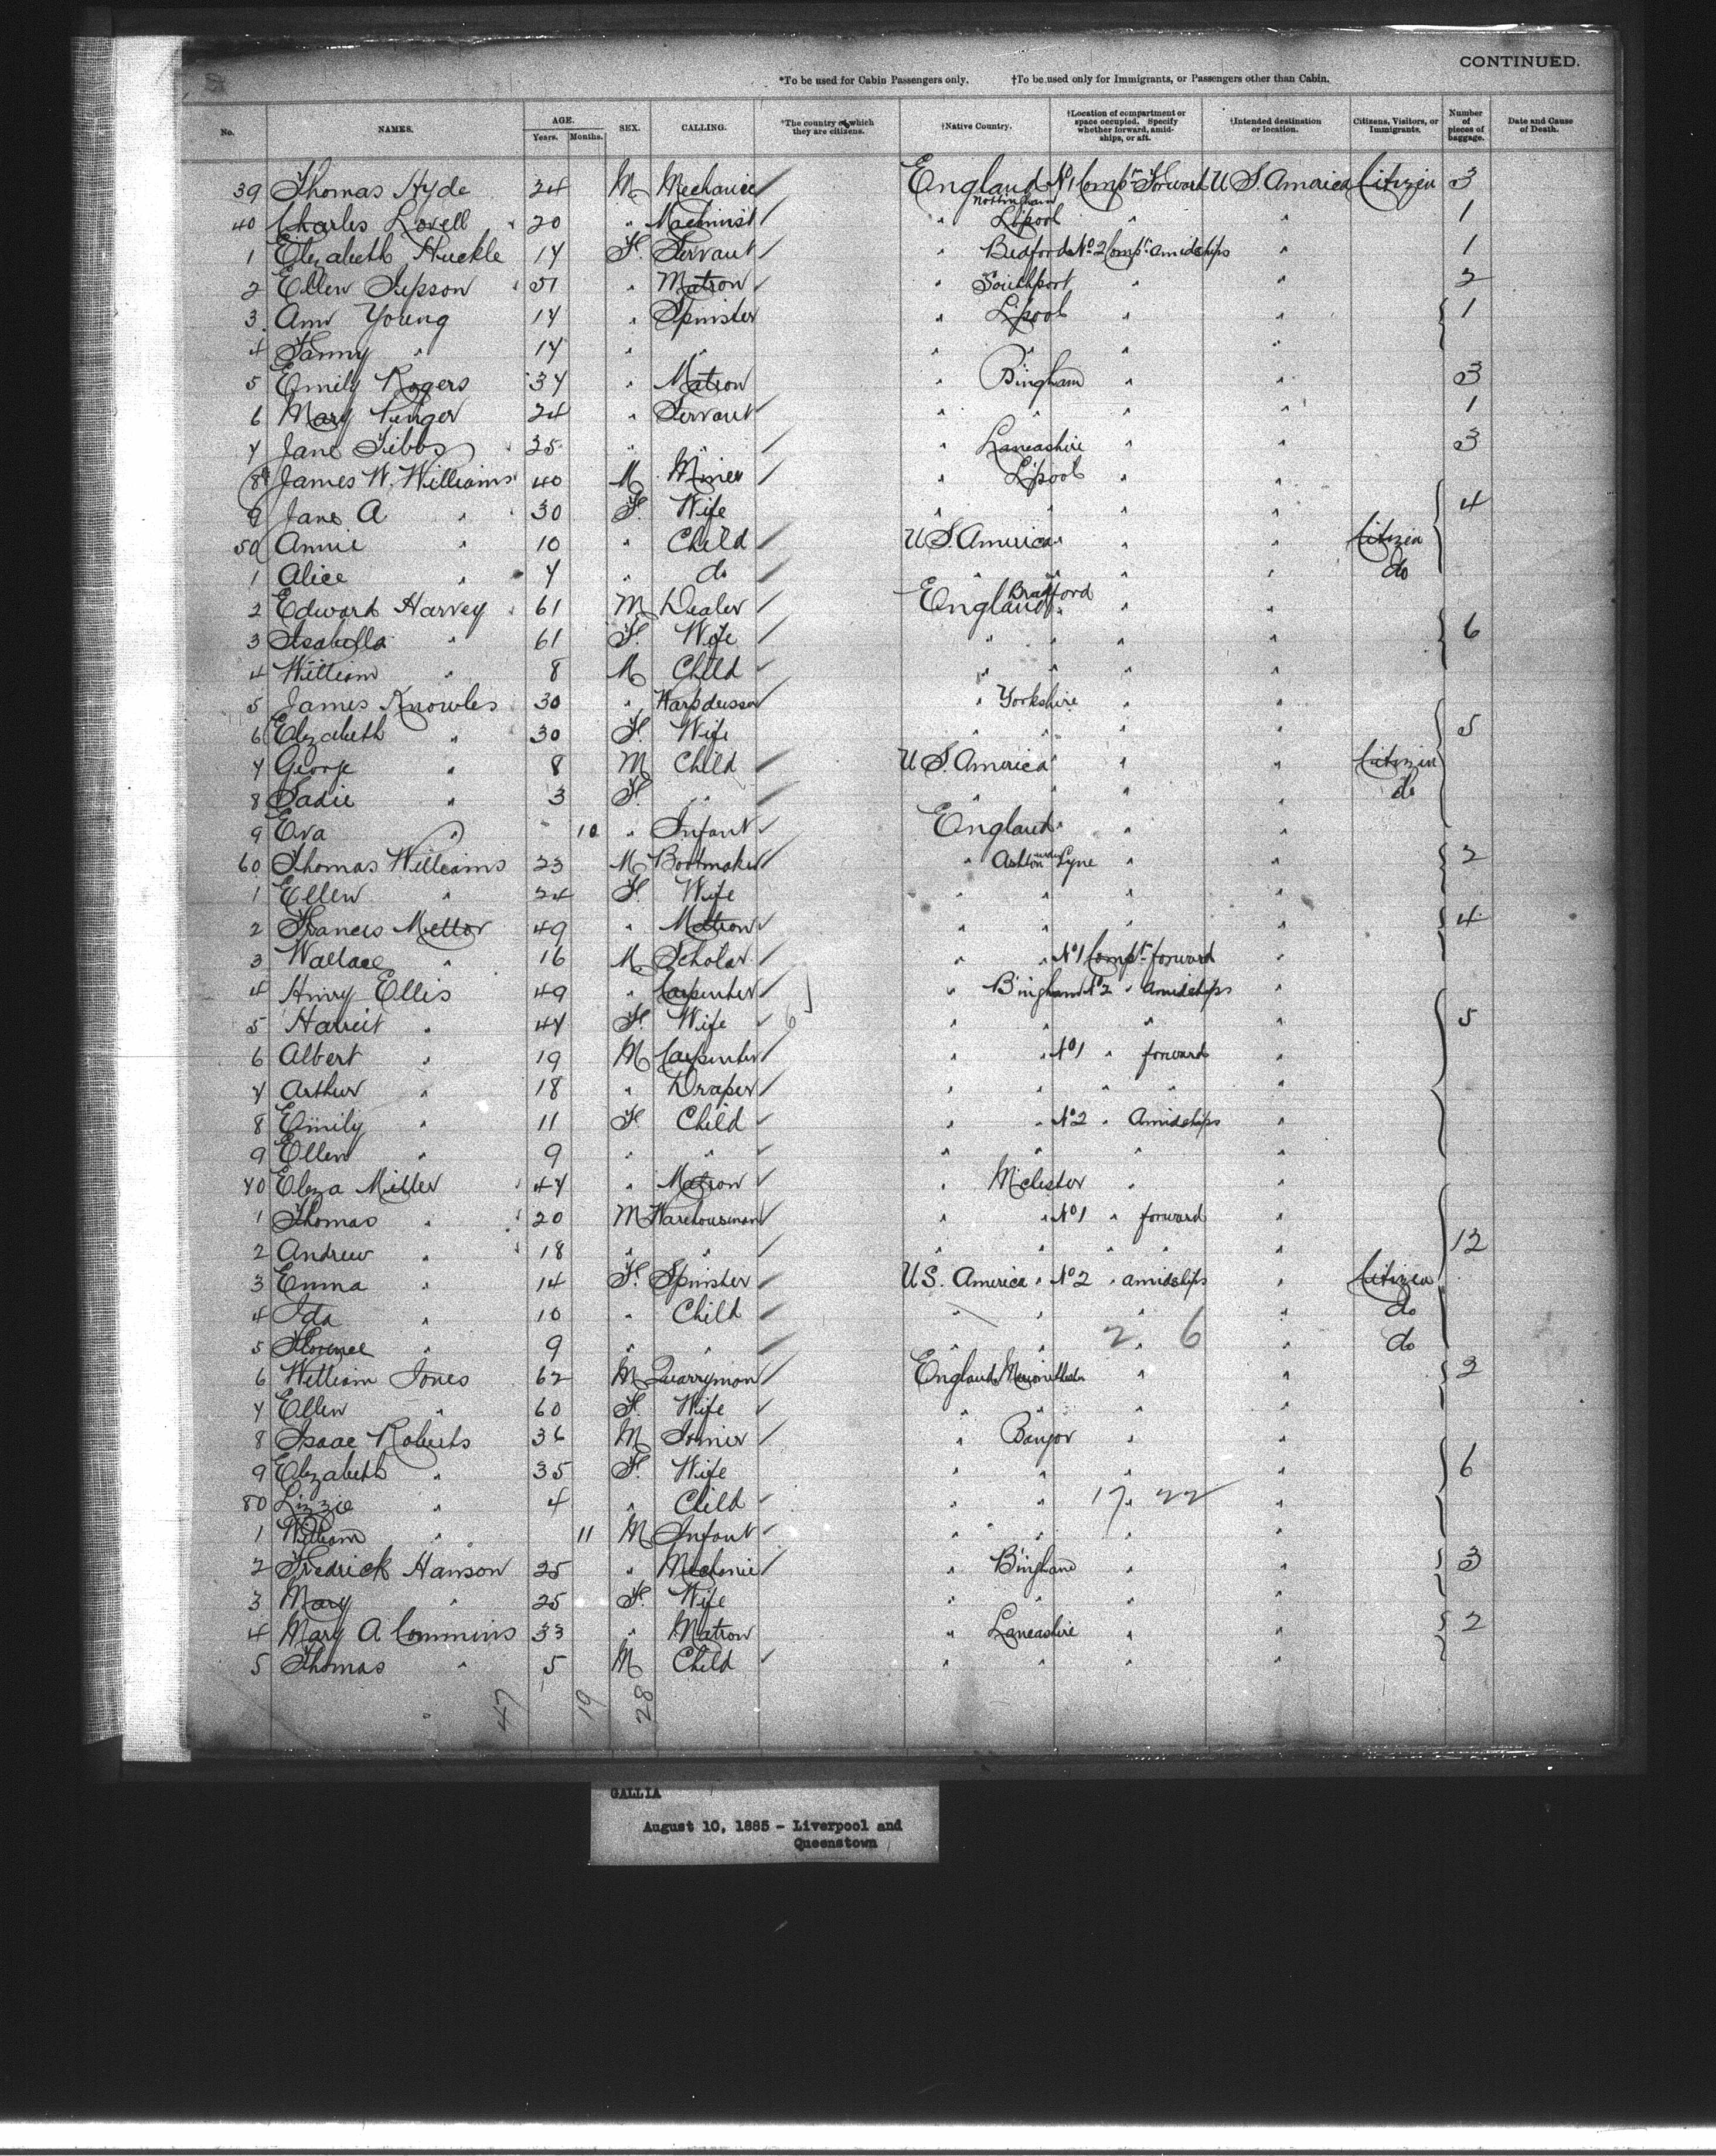 CONTINUED.
*To be used for Cabin Passengers only. †To be used only for Immigrants, or Passengers other than Cabin.
No. NAMES. AGE. Years. Months. SEX. CALLING. *The country of which they are citizens. †Native Country. †Location of compartment or space occupied. Specify whether forward, amidships, or aft. †Intended destination or location. Citizens, Visitors, or Immigrants. Number of pieces of baggage. Date and Cause of Death.
39 Thomas Hyde 24 M Mechanic England Nottingham No 1 Compt Forward U S. America Citizen 3
40 Charles Lovell 20 " Machinist " L'pool " " 1
1 Elizabeth Huckle 17 F. Servant " Bedford No 2 Compt amidships " 1
2 Ellen Jepson 51 " Matron " Southport " " 2
3 Ann Young 17 " Spinster " L'pool " " 1
4 Fanny " 17 " " " " " "
5 Emily Rogers 34 " Matron " Bingham " " 3
6 Mary 24 " Servant " " " " 1
7 Jane Tibbs 25 " " " Lancashire " " 3
8 James W. Williams 40 M Miner " L'pool " "
9 Jane A " 30 F. Wife " " " " 4
50 Annie " 10 " Child U S. America " " Citizen
1 Alice " 7 " do " " " " do
2 Edward Harvey 61 M Dealer England Bradford " "
3 Isabella " 61 F. Wife " " " " 6
4 William " 8 M Child " " " "
5 James Knowles 30 " Warpdresser " Yorkshire " "
6 Elizabeth " 30 F. Wife " " " " 5
7 George " 8 M Child U S. America " " Citizen
8 Sadie " 3 F. " " " " do
9 Eva " 10 " Infant England " " "
60 Thomas Williams 23 M Bootmaker " Ashton under Lyne " " 2
1 Ellen " 24 F. Wife " " " "
2 Francis Mellor 49 " Matron " " " " 4
3 Wallace " 16 M Scholar " " No 1 Compt forward "
4 Henry Ellis 49 " Carpenter " Bingham No 2 " Amidships "
5 Harriet " 47 F. Wife 6 " " " " 5
6 Albert " 19 M Carpenter " " No 1 " forward "
7 Arthur " 18 " Draper " " " " "
8 Emily " 11 F. Child " " No 2 " Amidships "
9 Ellen " 9 " " " " " "
70 Eliza Miller 47 " Matron " M'chester " "
1 Thomas " 20 M Warehouseman " " No 1 " forward "
2 Andrew " 18 " " " " " " " 12
3 Emma " 14 F. Spinster U S. America " No 2 " amidships " Citizen
4 Ida " 10 " Child " " " " do
5 Florence " 9 " " " 2 6 " do
6 William Jones 62 M Quarryman England " " 2
7 Ellen " 60 F. Wife " " " "
8 Isaac Roberts 36 M Joiner " Bangor " "
9 Elizabeth " 35 F. Wife " " " " 6
80 Lizzie " 4 " Child " " 17 22 "
1 William " 11 M Infant " " " "
2 Fredrick Hanson 25 " Mechanic " Bingham " " 3
3 Mary " 25 F. Wife " " " "
4 Mary A Commins 33 " Matron " Lancashire " " 2
5 Thomas " 5 M Child " " " "
47 19 28
GALLIA
August 10, 1885 - Liverpool and
Queenstown